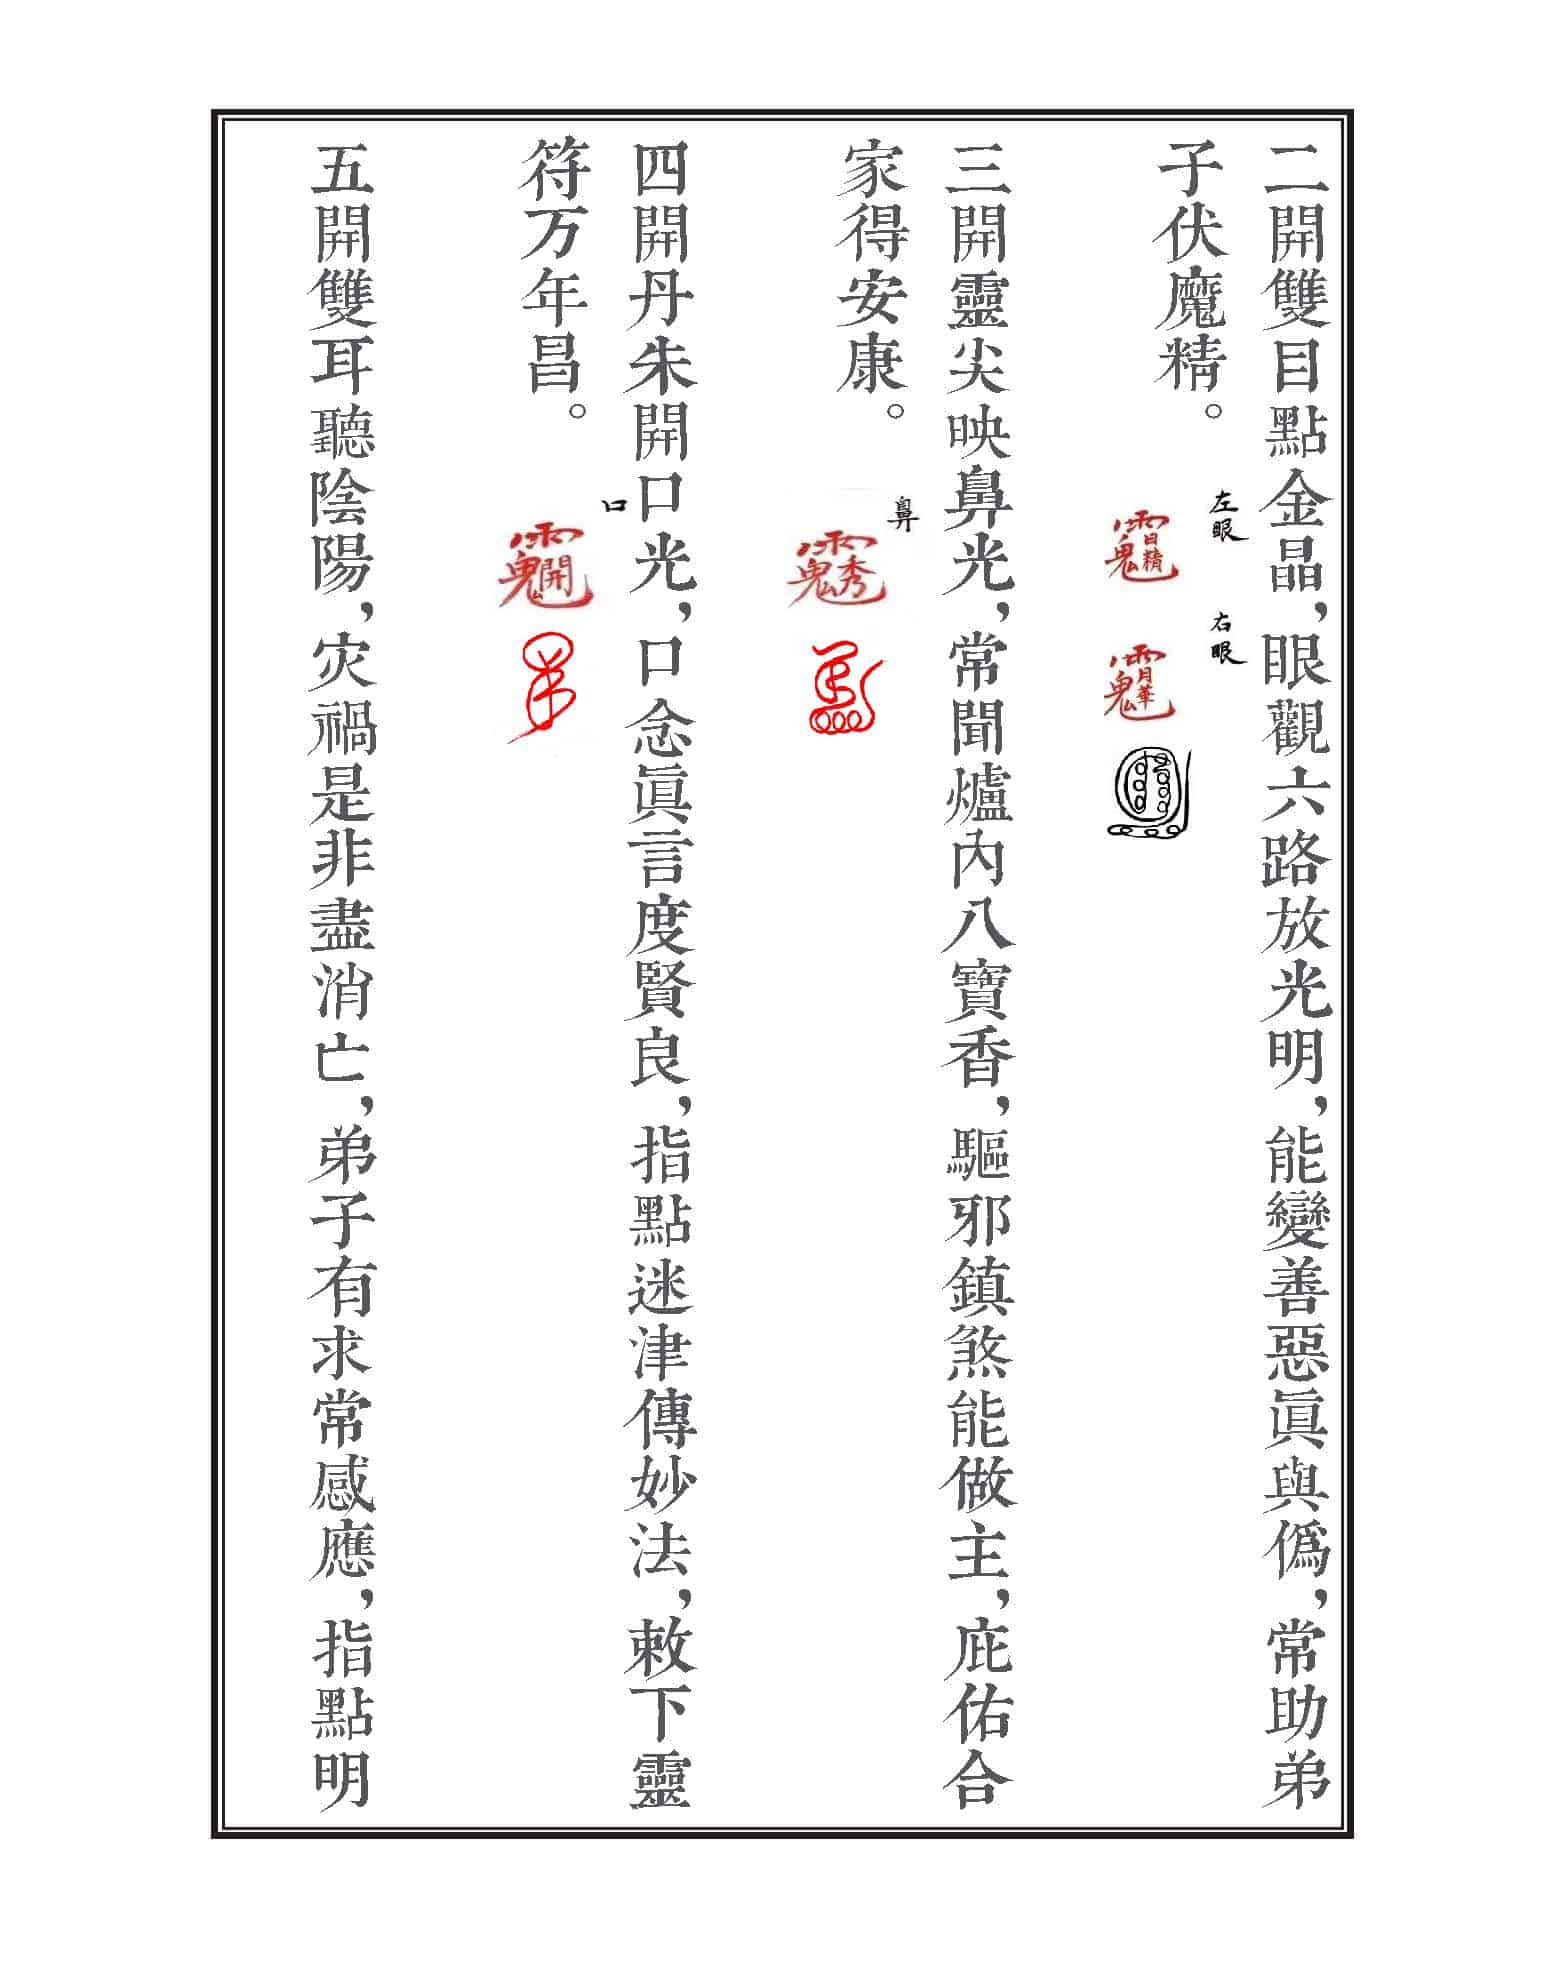 二開雙目點金晶，眼觀六路放光明，能變善惡眞與僞，常助弟
子伏魔精。
左眼
右眼
三開靈尖映鼻光，常聞爐內八寶香，驅邪鎮煞能做主，庇佑合
家得安康。
鼻
四開丹朱開口光，口念眞言度賢良，指點迷津傳妙法，敕下靈
符万年昌。
口
五開雙耳聽陰陽，灾禍是非盡消亡，弟子有求常感應，指點明